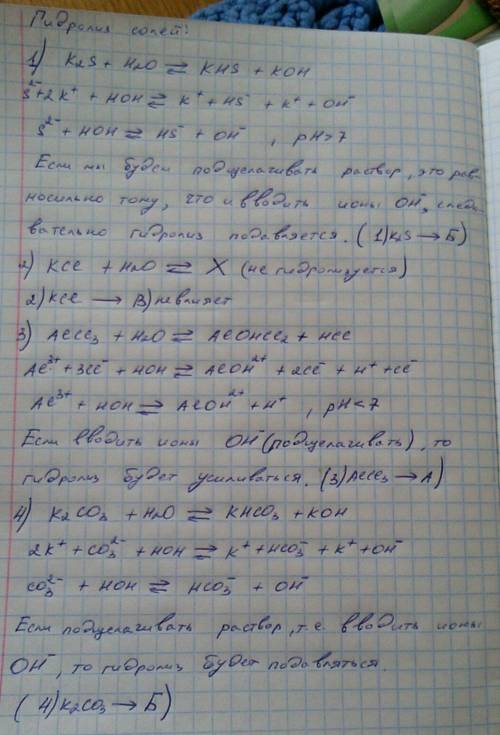 Гидролиз солей:
1) K₂S + H₂O ⇄ KHS + KOH
S²⁻+2K⁺ + HOH ⇄ K⁺ + HS⁻ + K⁺ + OH⁻
S²⁻ + HOH ⇄ HS⁻ + OH⁻ , pH>7
Если мы будем подщелачивать раствор, это рав-
носильно тому, что и вводить ионы OH⁻, следо-
вательно гидролиз подавляется. (1)K₂S → Б)
2) KCl + H₂O ⇄ X (не гидролизуется)
2) KCl → В) не влияет
3) AlCl₃ + H₂O ⇄ AlOHCl₂ + HCl
Al³⁺ + 3Cl⁻ + HOH ⇄ AlOH²⁺ + 2Cl⁻ + H⁺ + Cl⁻
Al³⁺ + HOH ⇄ AlOH²⁺ + H⁺ , pH<7
Если вводить ионы OH⁻ (подщелачивать), то
гидролиз будет усиливаться. (3) AlCl₃ → А)
4) K₂CO₃ + H₂O ⇄ KHCO₃ + KOH
2K⁺ + CO₃²⁻ + HOH ⇄ K⁺ + HCO₃⁻ + K⁺ + OH⁻
CO₃²⁻ + HOH ⇄ HCO₃⁻ + OH⁻
Если подщелачивать раствор, т.е. вводить ионы
OH⁻, то гидролиз будет подавляться.
(4) K₂CO₃ → Б)